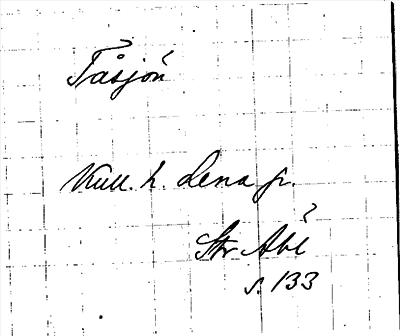 Tåsjön
Kull. h. Lena fr.
?
Str Abl
s. 133